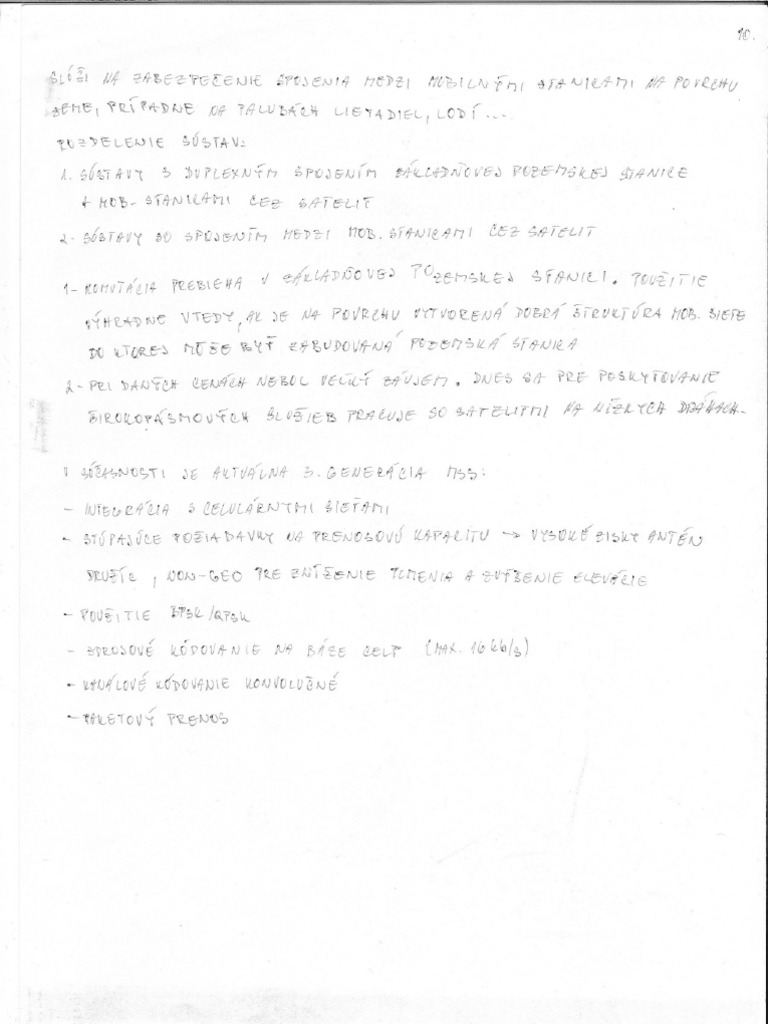 10.
SLÚŽI NA ZABEZPEČENIE SPOJENIA MEDZI MOBILNÝMI STANICAMI NA POVRCHU
ZEME, PRÍPADNE NA PALUBÁCH LIETADIEL, LODÍ...
ROZDELENIE SÚSTAV:
1. SÚSTAVY S DUPLEXNÝM SPOJENÍM ZÁKLADŇOVEJ POZEMSKEJ STANICE
+ MOB. STANICAMI CEZ SATELIT
2. SÚSTAVY SO SPOJENÍM MEDZI MOB. STANICAMI CEZ SATELIT
1- KOMUTÁCIA PREBIEHA V ZÁKLADŇOVEJ POZEMSKEJ STANICI. POUŽITIE
VÝHRADNE VTEDY, AK JE NA POVRCHU VYTVORENÁ DOBRÁ ŠTRUKTÚRA MOB. SIETE
DO KTOREJ MÔŽE BYŤ ZABUDOVANÁ POZEMSKÁ STANICA
2- PRI DANÝCH CENÁCH NEBOL VEĽKÝ ZÁUJEM. DNES SA PRE POSKYTOVANIE
ŠIROKOPÁSMOVÝCH SLUŽIEB PRACUJE SO SATELITMI NA NÍZKYCH DRÁHACH.
V SÚČASNOSTI JE AKTUÁLNA 3. GENERÁCIA MSS:
- INTEGRÁCIA S CELULÁRNYMI SIEŤAMI
- STÚPAJÚCE POŽIADAVKY NA PRENOSOVÚ KAPACITU → VYSOKÉ ZISKY ANTÉN
DRUŽÍC, NON-GEO PRE ZNÍŽENIE TLMENIA A ZVÝŠENIE ELEVÁCIE
- POUŽITIE BPSK/QPSK
- ZDROJOVÉ KÓDOVANIE NA BÁZE CELP (MAX. 16 kb/s)
- KANÁLOVÉ KÓDOVANIE KONVOLUČNÉ
- PAKETOVÝ PRENOS